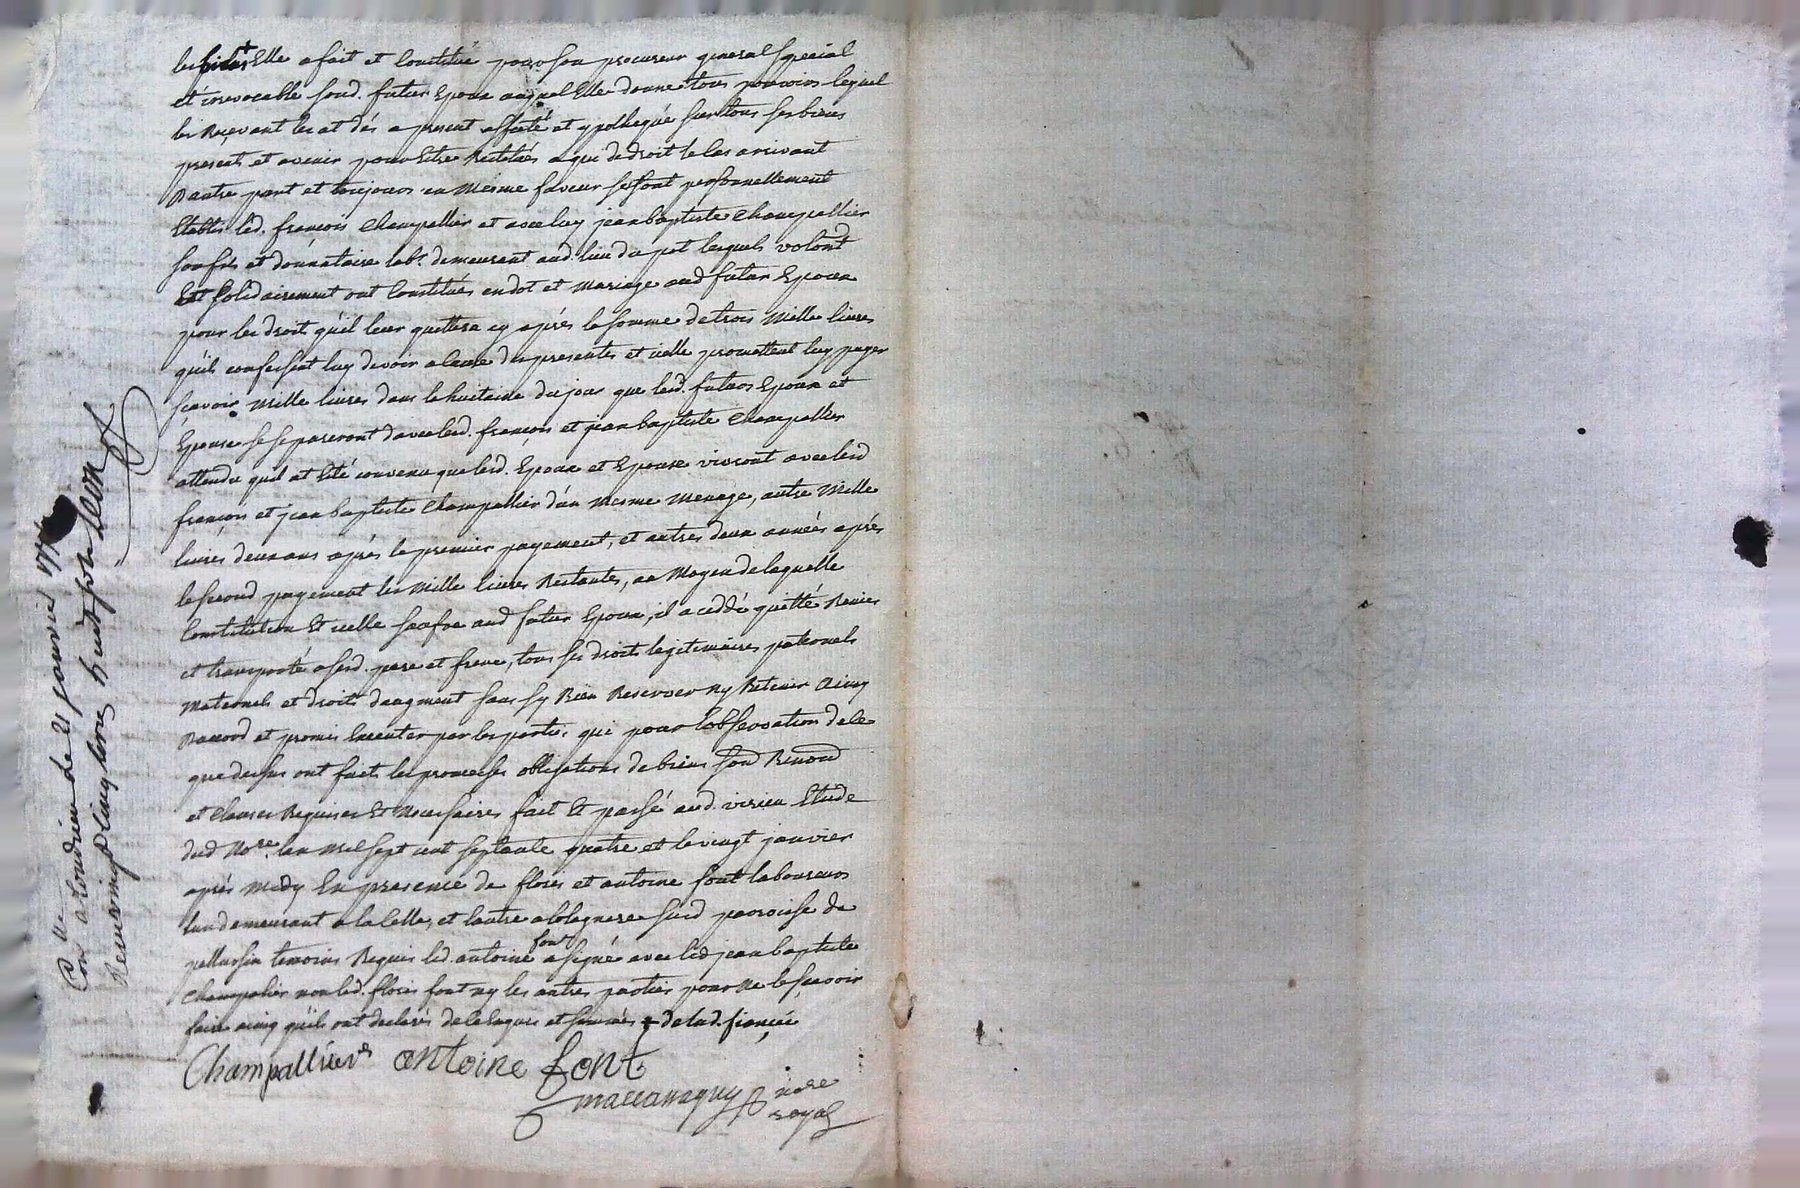 Elle a fait et Constitué pour son procureur general special
et irrevocable sond. futur Epoux auquel Elle donne tous pouvoirs lequel
les Recevant les at dés a present affecté et ypothequé sur tous ses biens
presents et avenir pour Estre Restitués a qui de droit le cas arrivant
Dautre part et toujours en Mesme faveur se sont personnellement
Etablis led. françois Champallier et avec luy jean baptiste Champallier
son fils et donnataire lab.r demeurant aud. lieu du pet lesquels volont
Et solidairement ont Constitués en dot et Mariage aud futur Epoux
pour les droit qu'il leur quittera cy aprés la somme de trois Mille livres
qu'ils confessent luy devoir a cause des presentes et icelle promettent luy payer
sçavoir Mille livres dans le huitaine du jour que lesd. futurs Epoux et
Epouse se separeront d'avec lesd. françois et jean baptiste Champallier
attendu quil at Eté convenu que lesd. Epoux et Epouse vivront avec lesd
françois et jean baptiste Champallier d'un Mesme Menage, autre Mille
livres deux ans aprés le premier payement, et autres deux années aprés
le second payement les Mille livres Restantes, au Moyen de laquelle
Constitution Et icelle sauve aud futur Epoux, il a ceddé quitté Remis
et transporté a sesd. pere et frere, tous ses droits legitimaires paternels
Maternels et droits daugment sans sy Rien Reserver ny Retenir Ainsy
Daccord et promis Executer par les parties qui pour l'observation de ce
que dessus ont faits les promesses obligations de biens
et Clauses Requises Et Necessaires fait Et passé aud. virieu Etude
dud No.re lan Mil sept cent septante quatre et le vingt janvier
aprés Midy En presence de floris et antoine font laboureurs
lun demeurant a la Celle, et lautre a susd parroisse de
pellussin temoins Requis led. antoine font a signé avec led jean baptiste
Champalier non led. floris font ny les autres parties pour Ne le sçavoir
faire ainsy quils ont declarés de le Enquis et sommés + de lad. fiancée
Champallier antoine font
maccanaguy no.re
royal
Con.lle a Condrieu le 21 janvier 1774